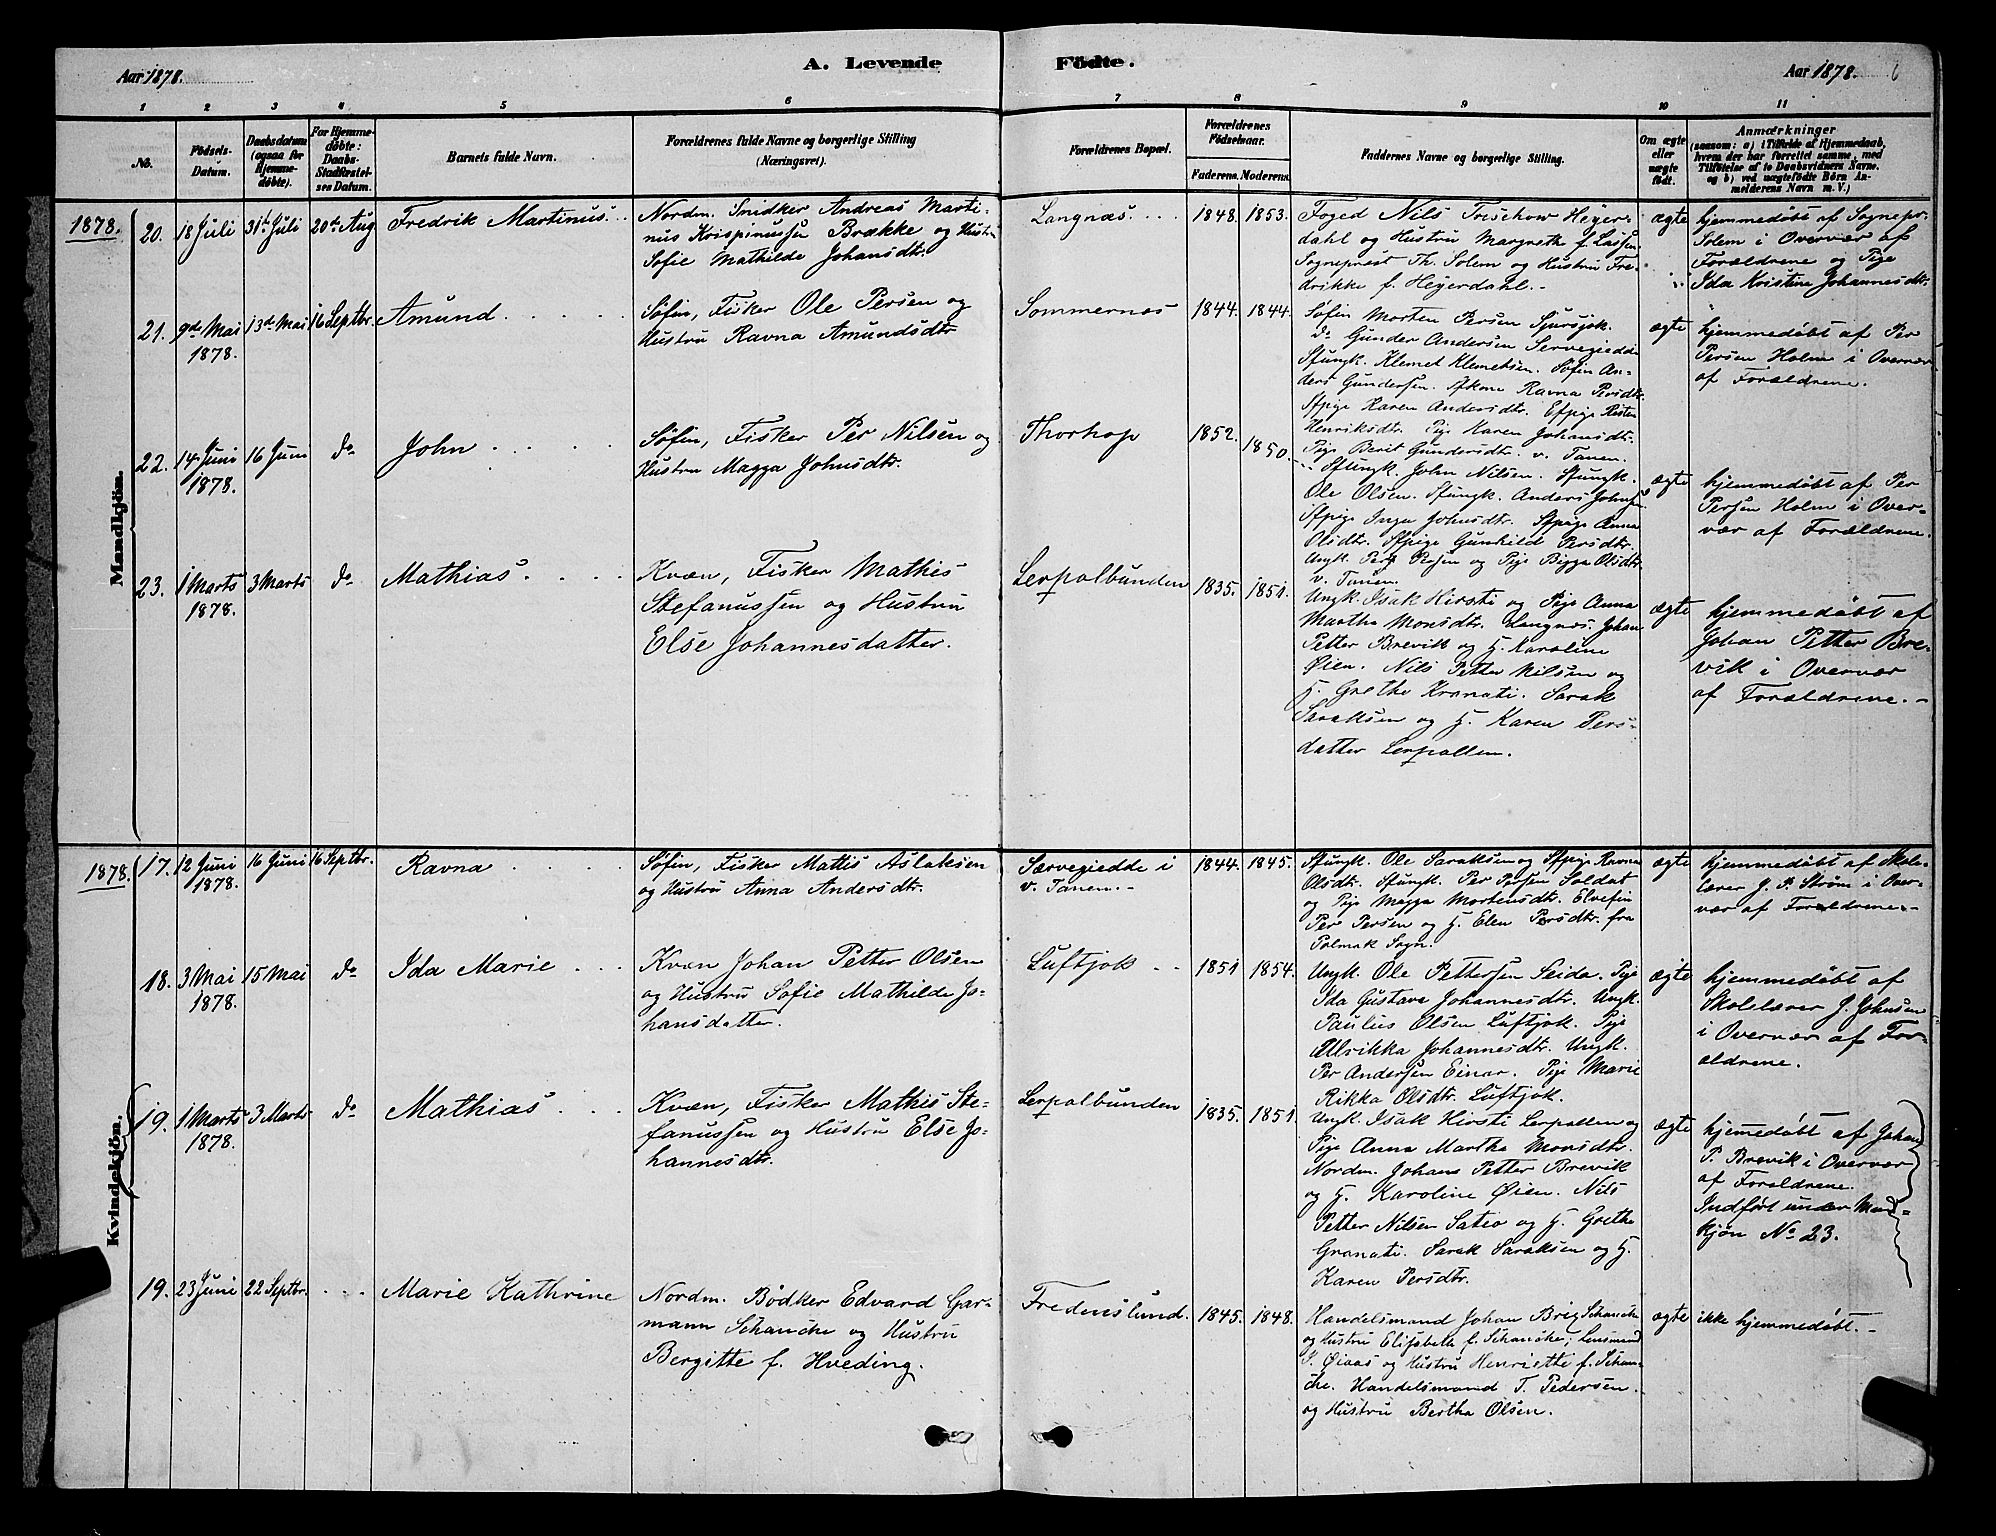 Aar 1878.
A. Levende Födte.
Aar 1878. 6
1 2 3 4 5 6 7 8 9 10 11
No.
Födsels-Datum.
Daabsdatum (ogsaa for Hjemmedöbte).
For Hjemmedöbte: Daabs-Stadfæstelses Datum.
Barnets fulde Navn.
Forældrenes fulde Navne og borgerlige Stilling (Næringsvei).
Forældrenes Bopæl.
Forældrenes Födselsaar.
Faderens. Moderens.
Faddernes Navne og borgerlige Stilling.
Om ægte eller uægte födt.
Anmærkninger
(saasom: a) i Tilfælde af Hjemmedaab, hvem der har forrettet samme, med Tilföielse af to Daabsvidners Navne, og b) ved uægtefödte Börn Anmelderens Navn m. V.)
Mandkjön.
1878.
20. 18 Juli 31te Juli 20de Aug Fredrik Martinus
Nordm. Snidker Andreas Marti-
nus Krispinussen Brække og Hustru
Sofie Mathilde Johansdtr.
Langnæs 1848. 1853.
Foged Nils Treschow Heyer-
dahl og Hustru Margrethe f. Lassen
Sogneprest Th. Solem og Hustru Fre-
drikke f. Heyerdahl.
ægte
hjemmedöbt af Sognepr.
Solem i Overvær af
Forældrene og Pige
Ida Kristine Johannesdtr.
21. 9de Mai 1878. 13de Mai 16 Septbr. Amund
Söfin, Fisker Ole Persen og
Hustru Ravna Amundsdtr
Sommernæs 1844. 1844.
Söfin Morten Persen Sjursjok.
do Gunder Andersen Servegiedde
Sfungk. Klemet Klemetsen. Söfin An-
ders Gundersen. Sfkone Ravna Persdtr.
Sfpige Karen Andersdtr. Efpige Risten
Henriksdtr. Pige Karen Johansdtr.
Pige Berit Gundersdtr. v. Tanen.
ægte
hjemmedöbt af Per
Persen Holm i Overvær
af Forældrene.
22. 14 Juni 1878. 16 Juni do John
Söfin, Fisker Per Nilsen og
Hustru Magga Johnsdtr.
Thorhop 1852. 1850.
Sfungk. John Nilsen. Sfungk.
Ole Olsen. Sfungk. Anders Johnsen
Sfpige Inga Johnsdtr. Sfpige Anna
Olsdtr. Sfpige Gunhild Persdtr.
Ungk. Per Persen og Pige Bigga Olsdtr
v. Tanen.
ægte
hjemmedöbt af Per
Persen Holm i Over-
vær af Forældrene.
23. 1 Marts 1878. 3 Marts do Mathias
Kvæn, Fisker Mathis
Stefanussen og Hustru
Else Johannesdatter.
Lerpolbunden 1835. 1851.
Ungk. Isak Hirsti og Pige Anna
Martha Monsdtr. Langnæs. Johan
Petter Brevik og H. Karoline
Øien. Nils Petter Nilsen og
H. Grethe Kranati. Sarak
Saraksen og H. Karen Pers-
datter Lerpollen.
ægte
hjemmedöbt af
Johan Petter Bre-
vik i Overvær
af Forældrene.
Kvindekjön.
1878.
17. 12 Juni 1878. 16 Juni 16 Septbr. Ravna
Söfin, Fisker Mattis Aslaksen
og Hustru Anna Andersdtr.
Særvegiedde i
v. Tanen. 1844. 1845.
Sfungk. Ole Saraksen og Sfpige Ravna
Olsdtr. Sfungk. Per Persen Soldat
og Pige Magga Mortensdtr. Elvefin
Per Persen og H. Elen Persdtr. fra
Polmak Sogn.
ægte
hjemmedöbt af Skole-
lærer J. P. Ström i Over-
vær af Forældrene.
18. 3 Mai 1878. 15 Mai do Ida Marie
Kvæn Johan Petter Olsen
og Hustru Sofie Mathilde Jo-
hansdatter.
Luftjok 1851 1854.
Ungk. Ole Pettersen Seida. Pige
Ida Gustava Johannesdtr. Ungk.
Paulus Olsen Luftjok. Pige
Ulrikka Johannesdtr. Ungk.
Per Andersen Einar. Pige Marie
Rikka Olsdtr. Luftjok.
ægte
hjemmedöbt af
Skolelærer J. Johnsen
i Overvær af For-
ældrene.
19. 1 Marts 1878. 3 Marts do Mathias
Kvæn, Fisker Mathis Ste-
fanussen og Hustru Else Jo-
hannesdtr.
Lerpolbunden 1835. 1851
Ungk. Isak Hirsti Lerpollen og
Pige Anna Martha Monsdtr.
Nordm. Johans Petter Brevik
og H. Karoline Øien. Nils
Petter Nilsen Satio og H. Grethe
Granati. Sarak Saraksen og H.
Karen Persdtr.
ægte
hjemmedöbt af Johan
P. Brevik i Overvær
af Forældrene.
Indfört under Mand-
kjön No 23.
19. 23 Juni 22 Septbr. Marie Kathrine
Nordm. Bödker Edvard Gar-
mann Schanche og Hustru
Bergitte f. Hveding.
Fredenslund. 1845. 1848.
Handelsmand Johan Brig Schanche
og Hustru Elisabeth f. Schanche; Lensmand
I. Øiaas og Hustru Henriette f. Schan-
che. Handelsmand T. Pedersen
og Hustru Bertha Olsen.
ægte
ikke hjemmedöbt.